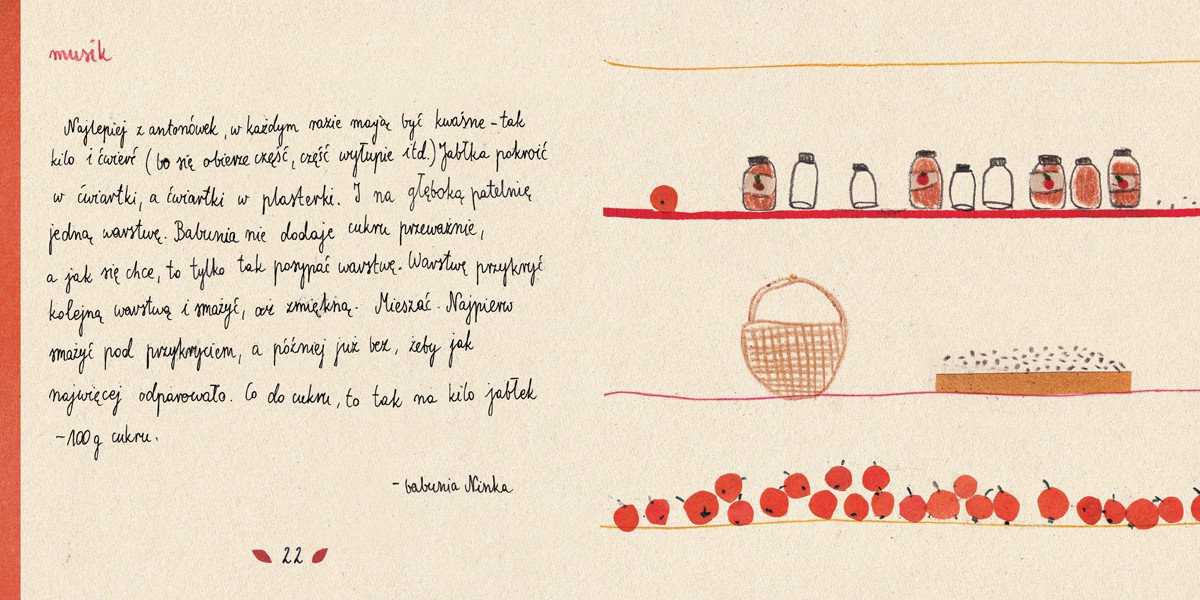 musik
Najlepiej z antonówek, w każdym razie mają być kwaśne - tak
kilo i ćwierć (bo się obierze część, część wyłupie itd.) Jabłka pokroić
w ćwiartki, a ćwiartki w plasterki. I na głęboką patelnię
jedną warstwę. Babunia nie dodaje cukru przeważnie,
a jak się chce, to tylko tak posypać warstwę. Warstwę przykryć
kolejną warstwą i smażyć, aż zmiękną. Mieszać. Najpierw
smażyć pod przykryciem, a później już bez, żeby jak
najwięcej odparowało. Co do cukru, to tak na kilo jabłek
- 100 g cukru.
- babunia Ninka
22